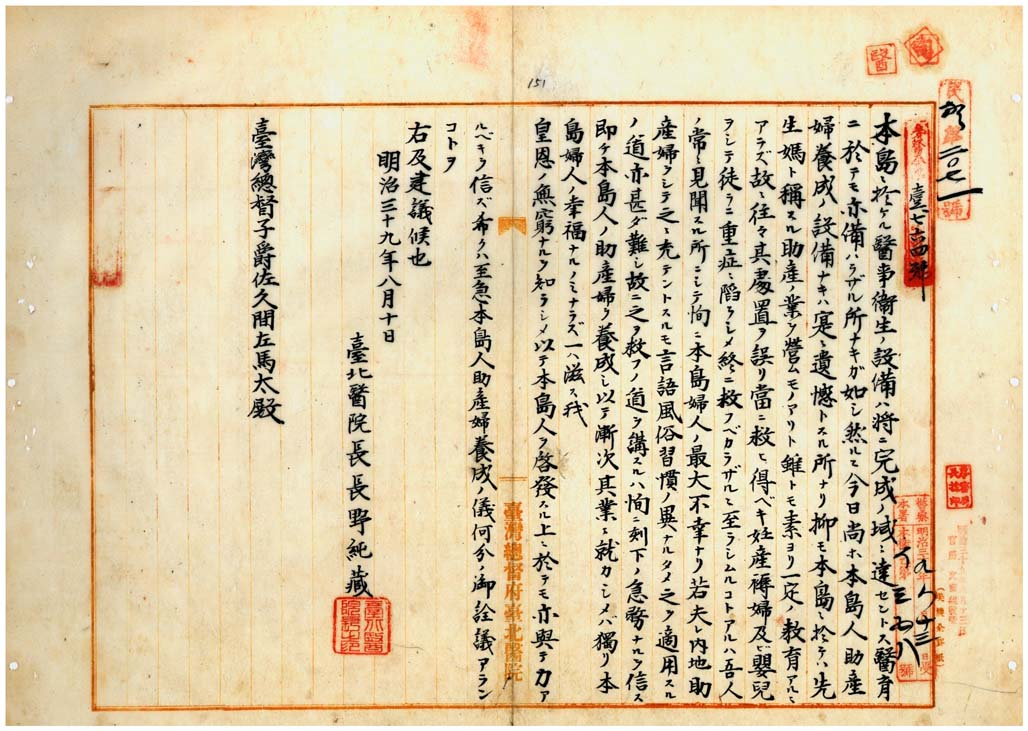 151
醫
民
第二〇七一號
臺七六四號
本島ニ於ケル醫事衛生ノ設備ハ將ニ完成ノ域ニ達セントス醫育
ニ於テモ亦備ハラザル所ナキガ如シ然ルニ今日尚ホ本島人助產
婦養成ノ設備ナキハ寔ニ遺憾トスル所ナリ抑モ本島ニ於テハ先
生媽ト稱スル助產ノ業ヲ營ムモノアリト雖トモ素ヨリ一定ノ教育アルニ
アラズ故ニ往々其處置ヲ誤リ當ニ救ヒ得ベキ妊產褥婦及ビ嬰兒
ヲシテ徒ラニ重症ニ陷ラシメ終ニ救フベカラザルニ至ラシムルコトアルハ吾人
ノ常ニ見聞スル所ニシテ恂ニ本島婦人ノ最大不幸ナリ若夫レ內地助
產婦ヲシテ之ニ充テントスルモ言語風俗習慣ノ異ナルタメ之ヲ適用スル
ノ道亦甚ダ難シ故ニ之ヲ救フノ道ヲ講スルハ恂ニ刻下ノ急務ナルヲ信ス
即チ本島人ノ助產婦ヲ養成シ以テ漸次其業ニ就カシメバ獨リ本
島婦人ノ幸福ナルノミナラズ一ハ滋ス我
皇恩ノ無窮ナルヲ知ラシメ以テ本島人ヲ啓發スル上ニ於テモ亦與テ力ア
ルベキヲ信ズ希クハ至急本島人助產婦養成ノ儀何分ノ御詮議アラン
コトヲ
右及建議候也
明治三十九年八月十日
臺北醫院長長野純藏
臺灣總督子爵佐久間左馬太殿
臺灣總督府臺北醫院